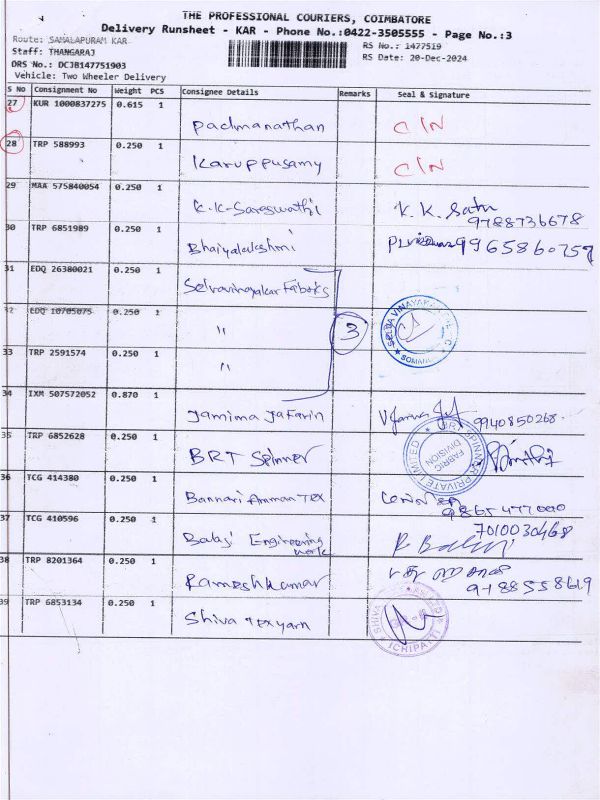 THE PROFESSIONAL COURIERS, COIMBATORE
Delivery Runsheet - KAR - Phone No.:0422-3505555 - Page No.:3
Route: SAMALAPURAM KAR
RS No.: 1477519
Staff: THANGARAJ
RS Date: 20-Dec-2024
DRS No.: DCJB147751903
Vehicle: Two Wheeler Delivery
S No Consignment No Weight PCS Consignee Details Remarks Seal & Signature
27 KUR 1000837275 0.615 1
Padmanathan C/N
28 TRP 588993 0.250 1
Karuppusamy C/N
29 MAA 575840054 0.250 1
K.K-Sareswathi K.K. Satu
9788736678
30 TRP 6851989 0.250 1
Bhaiyalakshmi 9965860757
31 EDQ 26380021 0.250 1
Selvavinayakar Fabrics
32 EDQ 10705075 0.250 1
" 3
33 TRP 2591574 0.250 1
"
34 IXM 507572052 0.870 1
Jamima Jafarin 9940850268
35 TRP 6852628 0.250 1
BRT Spinner
FABRIC DIVISION
36 TCG 414380 0.250 1
Bannari Amman Tex
9865477000
37 TCG 410596 0.250 1
7010030468
Balaji Engineering work
38 TRP 8201364 0.250 1
Rameshkumar
39 TRP 6853134 0.250 1
Shiva Tex yarn
ICHIPATTI